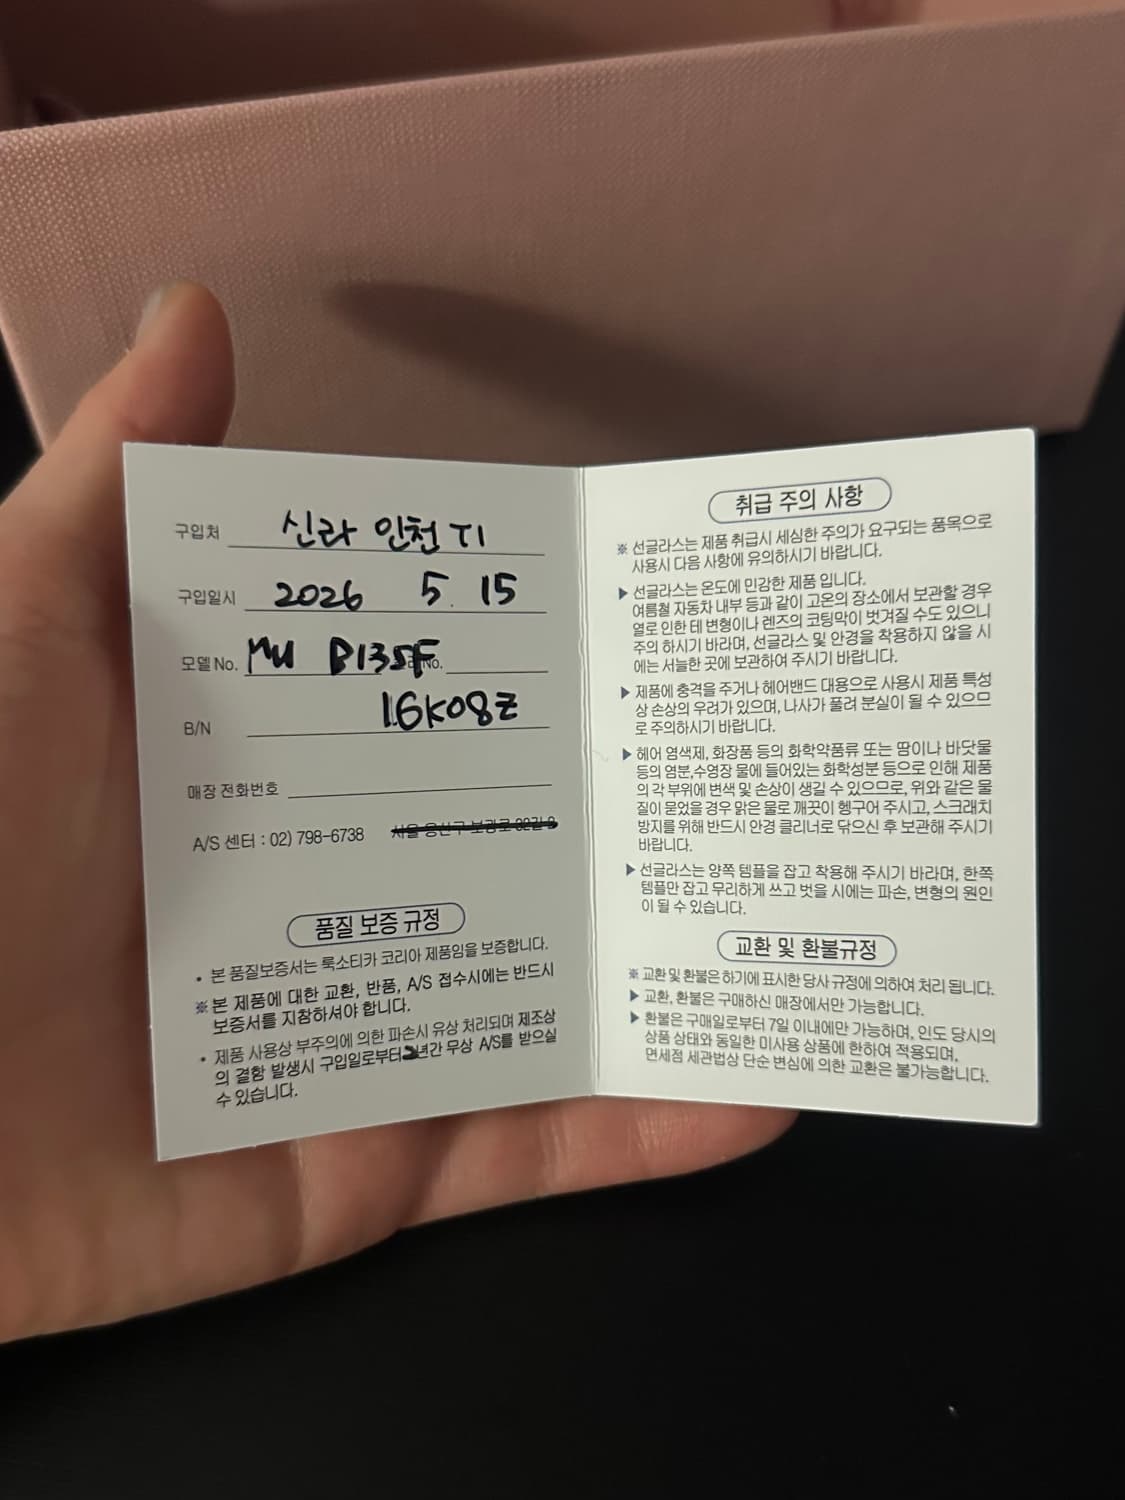 구입처 신라 인천 T1
구입일시 2026 5. 15
모델No. MU B135F No.
16K08Z
B/N
매장 전화번호
A/S 센터 : 02) 798-6738
품질 보증 규정
• 본 품질보증서는 룩소티카 코리아 제품임을 보증합니다.
※ 본 제품에 대한 교환, 반품, A/S 접수시에는 반드시
보증서를 지참하셔야 합니다.
• 제품 사용상 부주의에 의한 파손시 유상 처리되며 제조상
의 결함 발생시 구입일로부터 2년간 무상 A/S를 받으실
수 있습니다.
취급 주의 사항
※ 선글라스는 제품 취급시 세심한 주의가 요구되는 품목으로
사용시 다음 사항에 유의하시기 바랍니다.
▶ 선글라스는 온도에 민감한 제품 입니다.
여름철 자동차 내부 등과 같이 고온의 장소에서 보관할 경우
열로 인한 테 변형이나 렌즈의 코팅막이 벗겨질 수도 있으니
주의 하시기 바라며, 선글라스 및 안경을 착용하지 않을 시
에는 서늘한 곳에 보관하여 주시기 바랍니다.
▶ 제품에 충격을 주거나 헤어밴드 대용으로 사용시 제품 특성
상 손상의 우려가 있으며, 나사가 풀려 분실이 될 수 있으므
로 주의하시기 바랍니다.
▶ 헤어 염색제, 화장품 등의 화학약품류 또는 땀이나 바닷물
등의 염분,수영장 물에 들어있는 화학성분 등으로 인해 제품
의 각 부위에 변색 및 손상이 생길 수 있으므로, 위와 같은 물
질이 묻었을 경우 맑은 물로 깨끗이 헹구어 주시고, 스크래치
방지를 위해 반드시 안경 클리너로 닦으신 후 보관해 주시기
바랍니다.
▶ 선글라스는 양쪽 템플을 잡고 착용해 주시기 바라며, 한쪽
템플만 잡고 무리하게 쓰고 벗을 시에는 파손, 변형의 원인
이 될 수 있습니다.
교환 및 환불규정
※ 교환 및 환불은 하기에 표시한 당사 규정에 의하여 처리 됩니다.
▶ 교환, 환불은 구매하신 매장에서만 가능합니다.
▶ 환불은 구매일로부터 7일 이내에만 가능하며, 인도 당시의
상품 상태와 동일한 미사용 상품에 한하여 적용되며,
면세점 세관법상 단순 변심에 의한 교환은 불가능합니다.